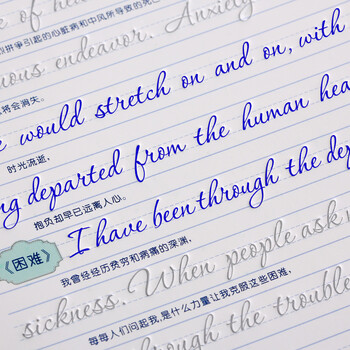 of he
拼争引起的心脏病和中风所导致的死亡
uous endeavor. Anxiety
将会消失。
would stretch on and on, with
时光流逝，
ng departed from the human hea
抱负却早已远离人心。
《困难》
I have been through the dep
我曾经经历贫穷和病痛的深渊，
sickness. When people ask
每每人们问起我，是什么力量让我克服这些困难，
through the trouble